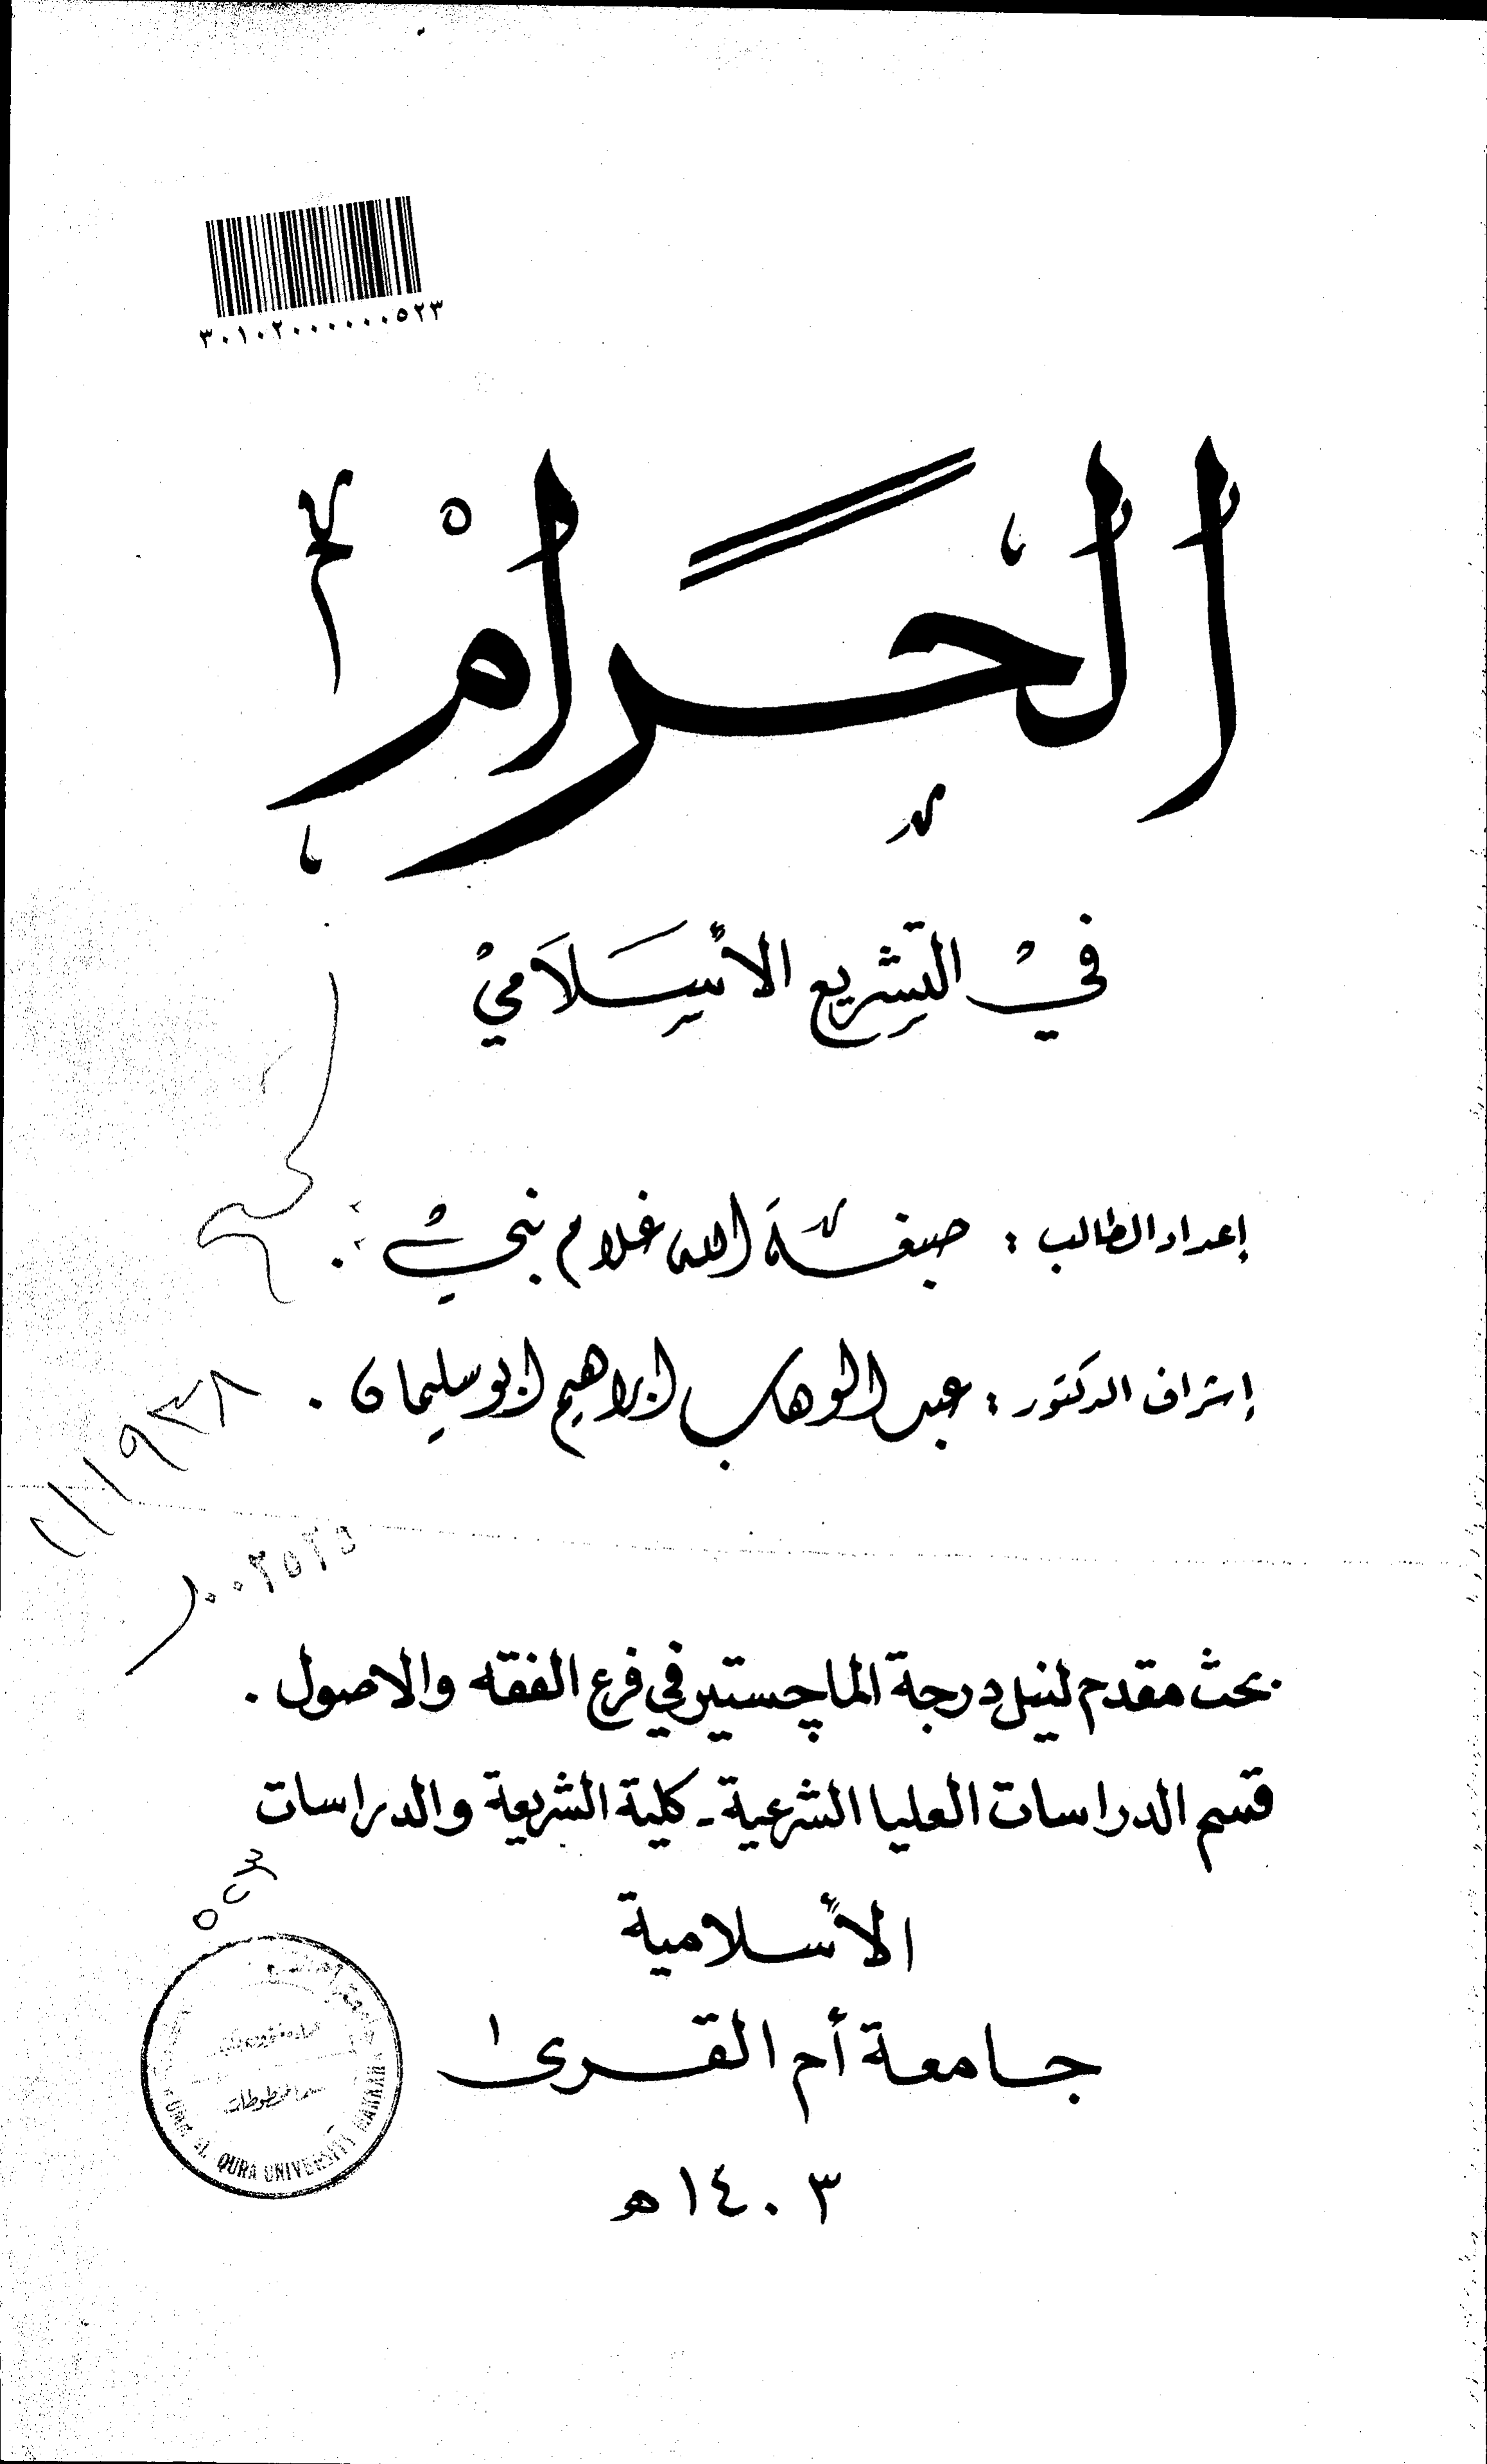 ٣٠١٠٢٠٠٠٠٠٠٥٢٣
الحَرَامْ
فيْ التَشريع الأسَلَاميْ
إعداد الطالب : صبغة الله غلام نبي .
إشراف الدكتور : عبد الوهاب ابراهيم ابو سليمان .
١١٩٣٨
٠٠٢٥٢٥
بحث مقدم لنيل درجة الماجستير في فرع الفقه والاصول .
قسم الدراسات العليا الشرعية - كلية الشريعة والدراسات
الأسلامية
٥٢٣
جامعة أم القرى
المخطوطات
QURA UNIVERSITY MAKKAH
١٤٠٣ه